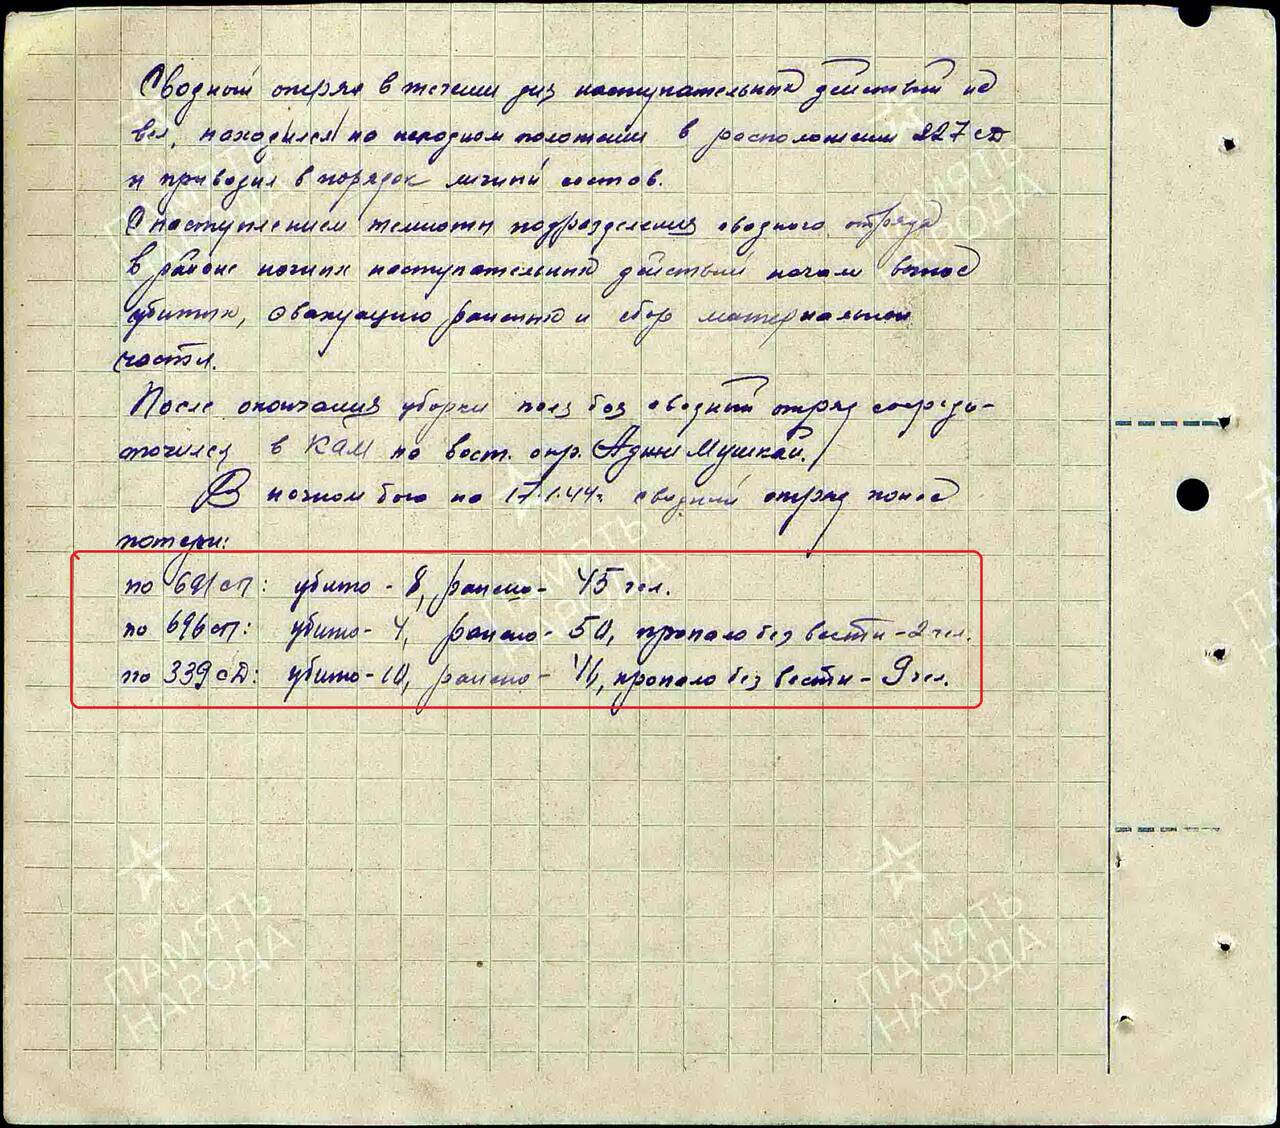 Сводный отряд в течении дня наступательных действий не
вел, находился на исходном положении в расположении 227 сд
и приводил в порядок личный состав.
С наступлением темноты подразделения сводного отряда
в районе ночных наступательных действий начали вынос
убитых, эвакуацию раненых и сбор материальной
части.
После окончания уборки поля боя сводный отряд сосредо-
точился в КАМ. на вост. окр. Аджи Мушкай.
В ночном бою на 17.1.44г. сводный отряд понес
потери:
по 691 сп: убито - 8, ранено - 45 чел.
по 696 сп: убито - 4, ранено - 50, пропало без вести - 2 чел.
по 339 сд: убито - 10, ранено - пропало без вести - 9 чел.
ПАМЯТЬ
НАРОДА
ПАМЯТЬ
НАРОДА
ПАМЯТЬ
НАРОДА
ПАМЯТЬ
НАРОДА
ПАМЯТЬ
НАРОДА